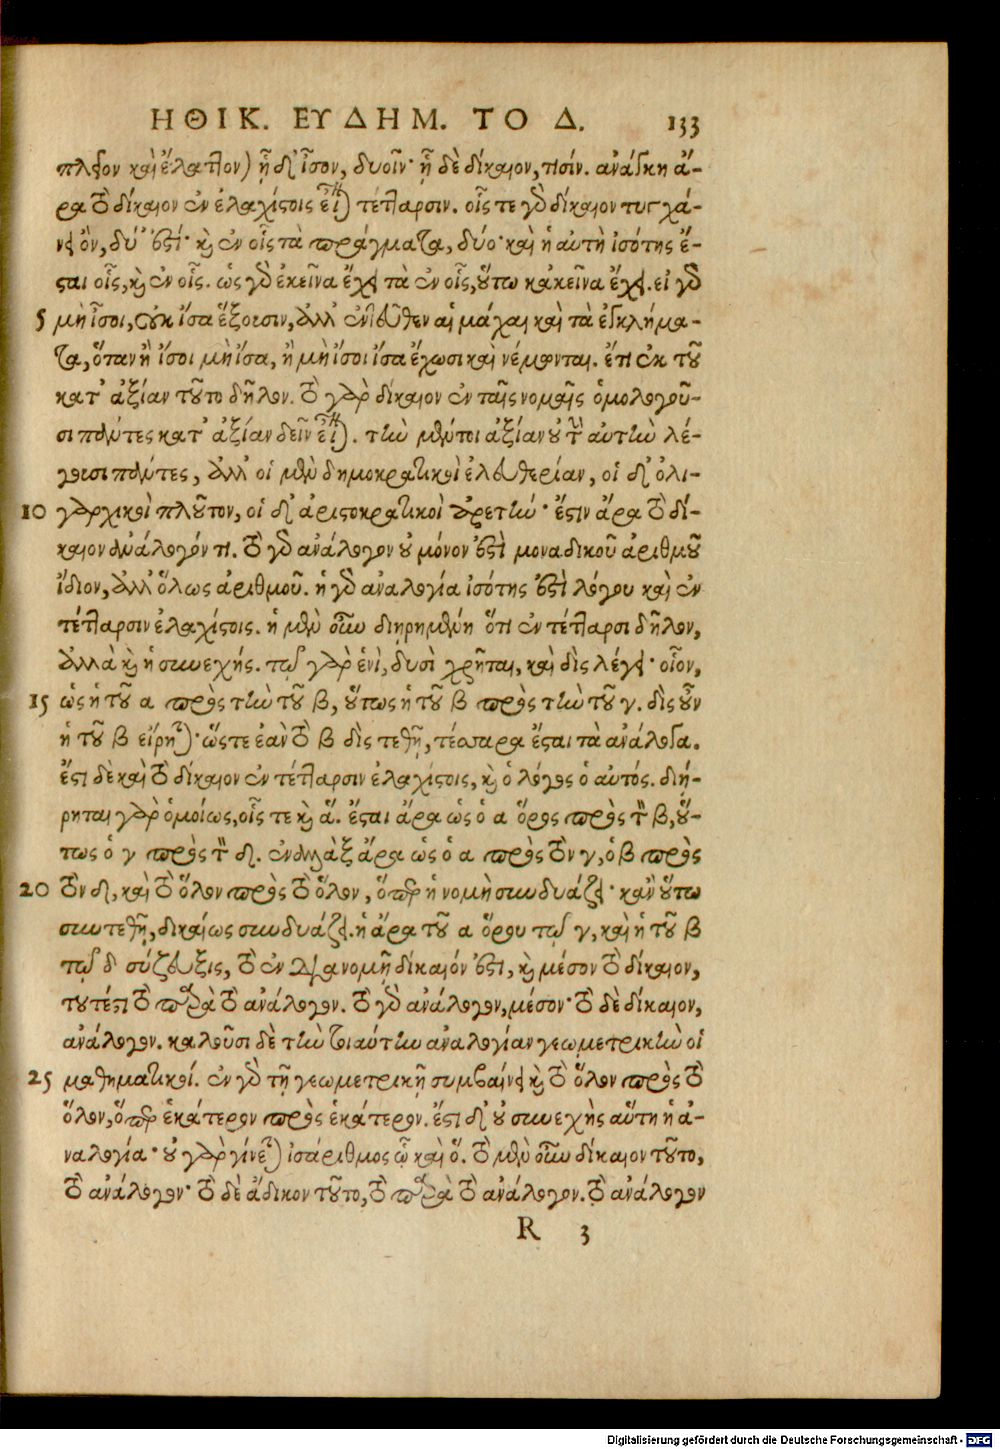 ΗΘΙΚ. ΕΥΔΗΜ. ΤΟ Δ. 133
πλεῖον καὶ ἔλαττον) ᾗ δ' ἴσον, δυοῖν· ᾗ δὲ δίκαιον, τισίν. ἀνάγκη ἄ-
ρα τὸ δίκαιον ἐν ἐλαχίστοις εἶναι τέτταρσιν. οἷς τε γὰρ δίκαιον τυγχά-
νει ὂν, δύ' ἐστί· καὶ ἐν οἷς τὰ πράγματα, δύο· καὶ ἡ αὐτὴ ἰσότης ἔ-
σται οἷς, καὶ ἐν οἷς. ὡς γὰρ ἐκεῖνα ἔχει τὰ ἐν οἷς, οὕτω κἀκεῖνα ἔχει. εἰ γὰρ
5 μὴ ἴσοι, οὐκ ἴσα ἕξουσιν, ἀλλ' ἐντεῦθεν αἱ μάχαι καὶ τὰ ἐγκλήμα-
τα, ὅταν ἢ ἴσοι μὴ ἴσα, ἢ μὴ ἴσοι ἴσα ἔχωσι καὶ νέμονται. ἔτι ἐκ τοῦ
κατ' ἀξίαν τοῦτο δῆλον. τὸ γὰρ δίκαιον ἐν ταῖς νομαῖς ὁμολογοῦ-
σι πάντες κατ' ἀξίαν δεῖν εἶναι. τὴν μέντοι ἀξίαν οὐ τὴν αὐτὴν λέ-
γουσι πάντες, ἀλλ' οἱ μὲν δημοκρατικοὶ ἐλευθερίαν, οἱ δ' ὀλι-
10 γαρχικοὶ πλοῦτον, οἱ δ' ἀριστοκρατικοὶ ἀρετήν· ἔστιν ἄρα τὸ δί-
καιον ἀνάλογόν τι. τὸ γὰρ ἀνάλογον οὐ μόνον ἐστὶ μοναδικοῦ ἀριθμοῦ
ἴδιον, ἀλλ' ὅλως ἀριθμοῦ. ἡ γὰρ ἀναλογία ἰσότης ἐστὶ λόγου καὶ ἐν
τέτταρσιν ἐλαχίστοις. ἡ μὲν οὖν διῃρημένη ὅτι ἐν τέτταρσι δῆλον,
ἀλλὰ καὶ ἡ συνεχής. τῷ γὰρ ἑνὶ, δυσὶ χρῆται, καὶ δὶς λέγει· οἷον,
15 ὡς ἡ τοῦ α πρὸς τὴν τοῦ β, οὕτως ἡ τοῦ β πρὸς τὴν τοῦ γ. δὶς οὖν
ἡ τοῦ β εἴρηται· ὥστε ἐὰν τὸ β δὶς τεθῇ, τέσσαρα ἔσται τὰ ἀνάλογα.
ἔστι δὲ καὶ τὸ δίκαιον ἐν τέτταρσιν ἐλαχίστοις, καὶ ὁ λόγος ὁ αὐτός. διῄ-
ρηται γὰρ ὁμοίως, οἷς τε καὶ ἅ. ἔσται ἄρα ὡς ὁ α ὅρος πρὸς τὸν β, οὕ-
τως ὁ γ πρὸς τὸν δ. ἐναλλὰξ ἄρα ὡς ὁ α πρὸς τὸν γ, ὁ β πρὸς
20 τὸν δ, καὶ τὸ ὅλον πρὸς τὸ ὅλον, ὅπερ ἡ νομὴ συνδυάζει· κἂν οὕτω
συντεθῇ, δικαίως συνδυάζει. ἡ ἄρα τοῦ α ὅρου τῷ γ, καὶ ἡ τοῦ β
τῷ δ σύζευξις, τὸ ἐν διανομῇ δίκαιόν ἐστι, καὶ μέσον τὸ δίκαιον,
τουτέστι τὸ παρὰ τὸ ἀνάλογον. τὸ γὰρ ἀνάλογον, μέσον· τὸ δὲ δίκαιον,
ἀνάλογον. καλοῦσι δὲ τὴν τοιαύτην ἀναλογίαν γεωμετρικὴν οἱ
25 μαθηματικοί. ἐν γὰρ τῇ γεωμετρικῇ συμβαίνει καὶ τὸ ὅλον πρὸς τὸ
ὅλον, ὅπερ ἑκάτερον πρὸς ἑκάτερον. ἔστι δ' οὐ συνεχὴς αὕτη ἡ ἀ-
ναλογία· οὐ γὰρ γίνεται ἰσάριθμος ᾧ καὶ ὅ. τὸ μὲν οὖν δίκαιον τοῦτο,
τὸ ἀνάλογον· τὸ δὲ ἄδικον τοῦτο, τὸ παρὰ τὸ ἀνάλογον. τὸ ἀνάλογον
R 3
Digitalisierung gefördert durch die Deutsche Forschungsgemeinschaft - DFG